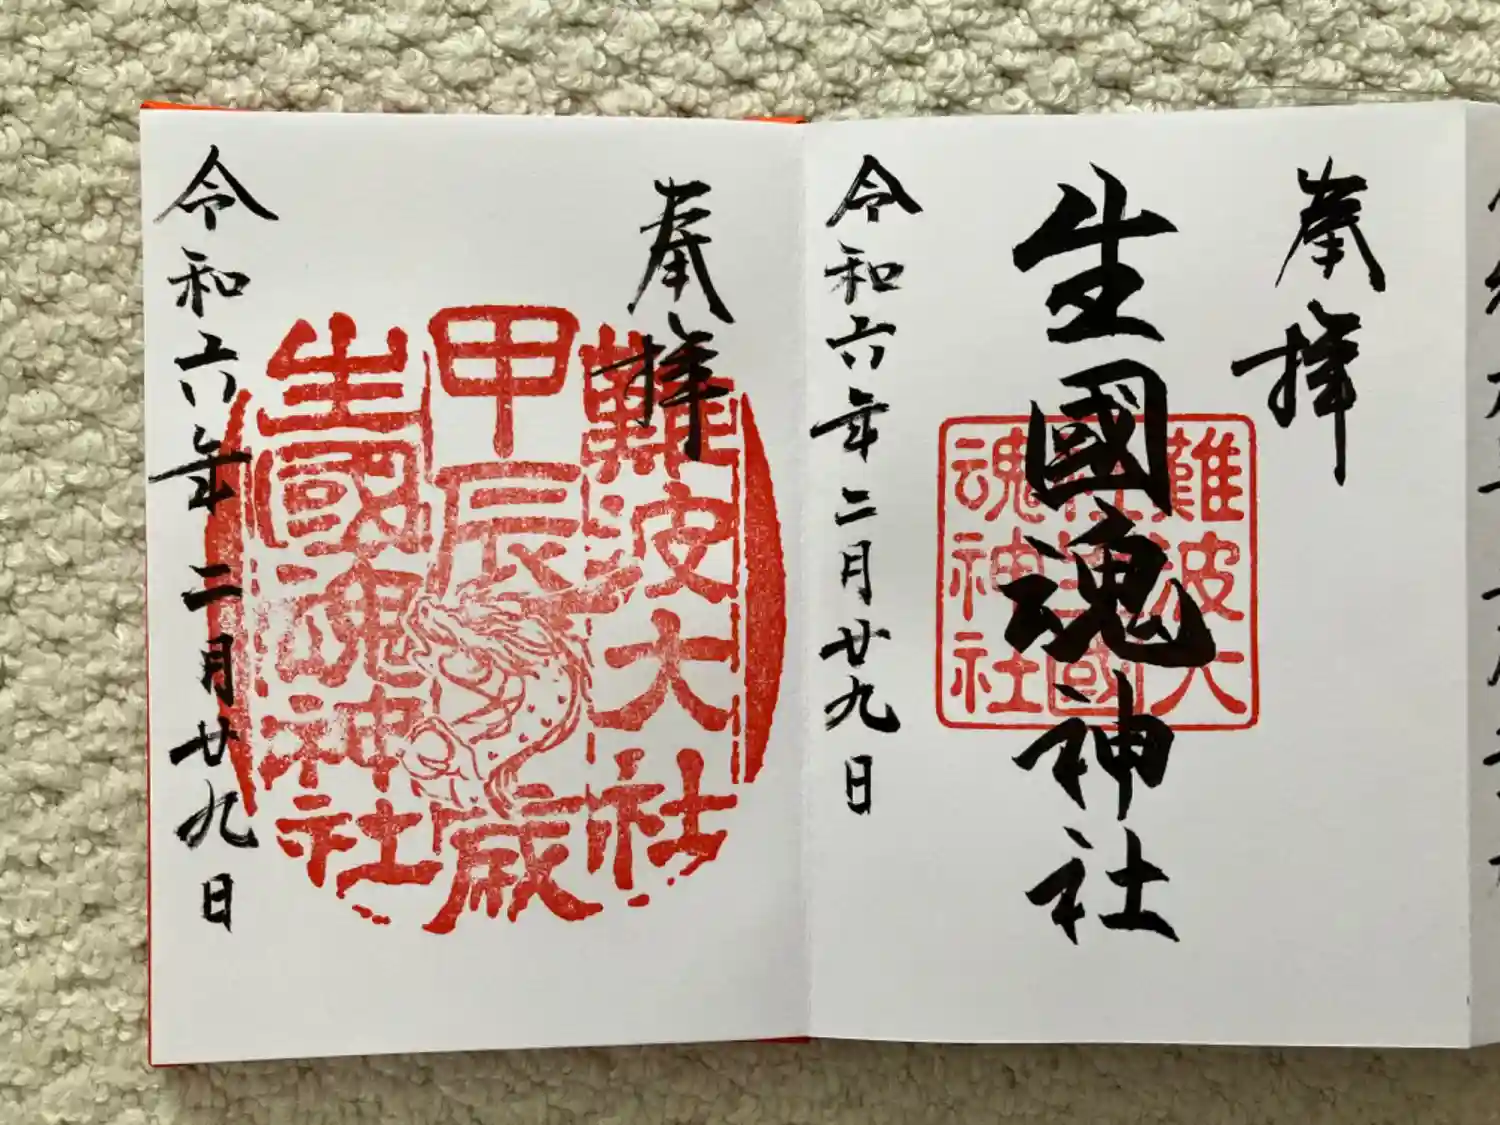 奉拝
生國魂神社
難波大社
生國魂神社
令和六年二月廿九日
奉拝
難波大社
甲辰歳
生國魂神社
令和六年二月廿九日